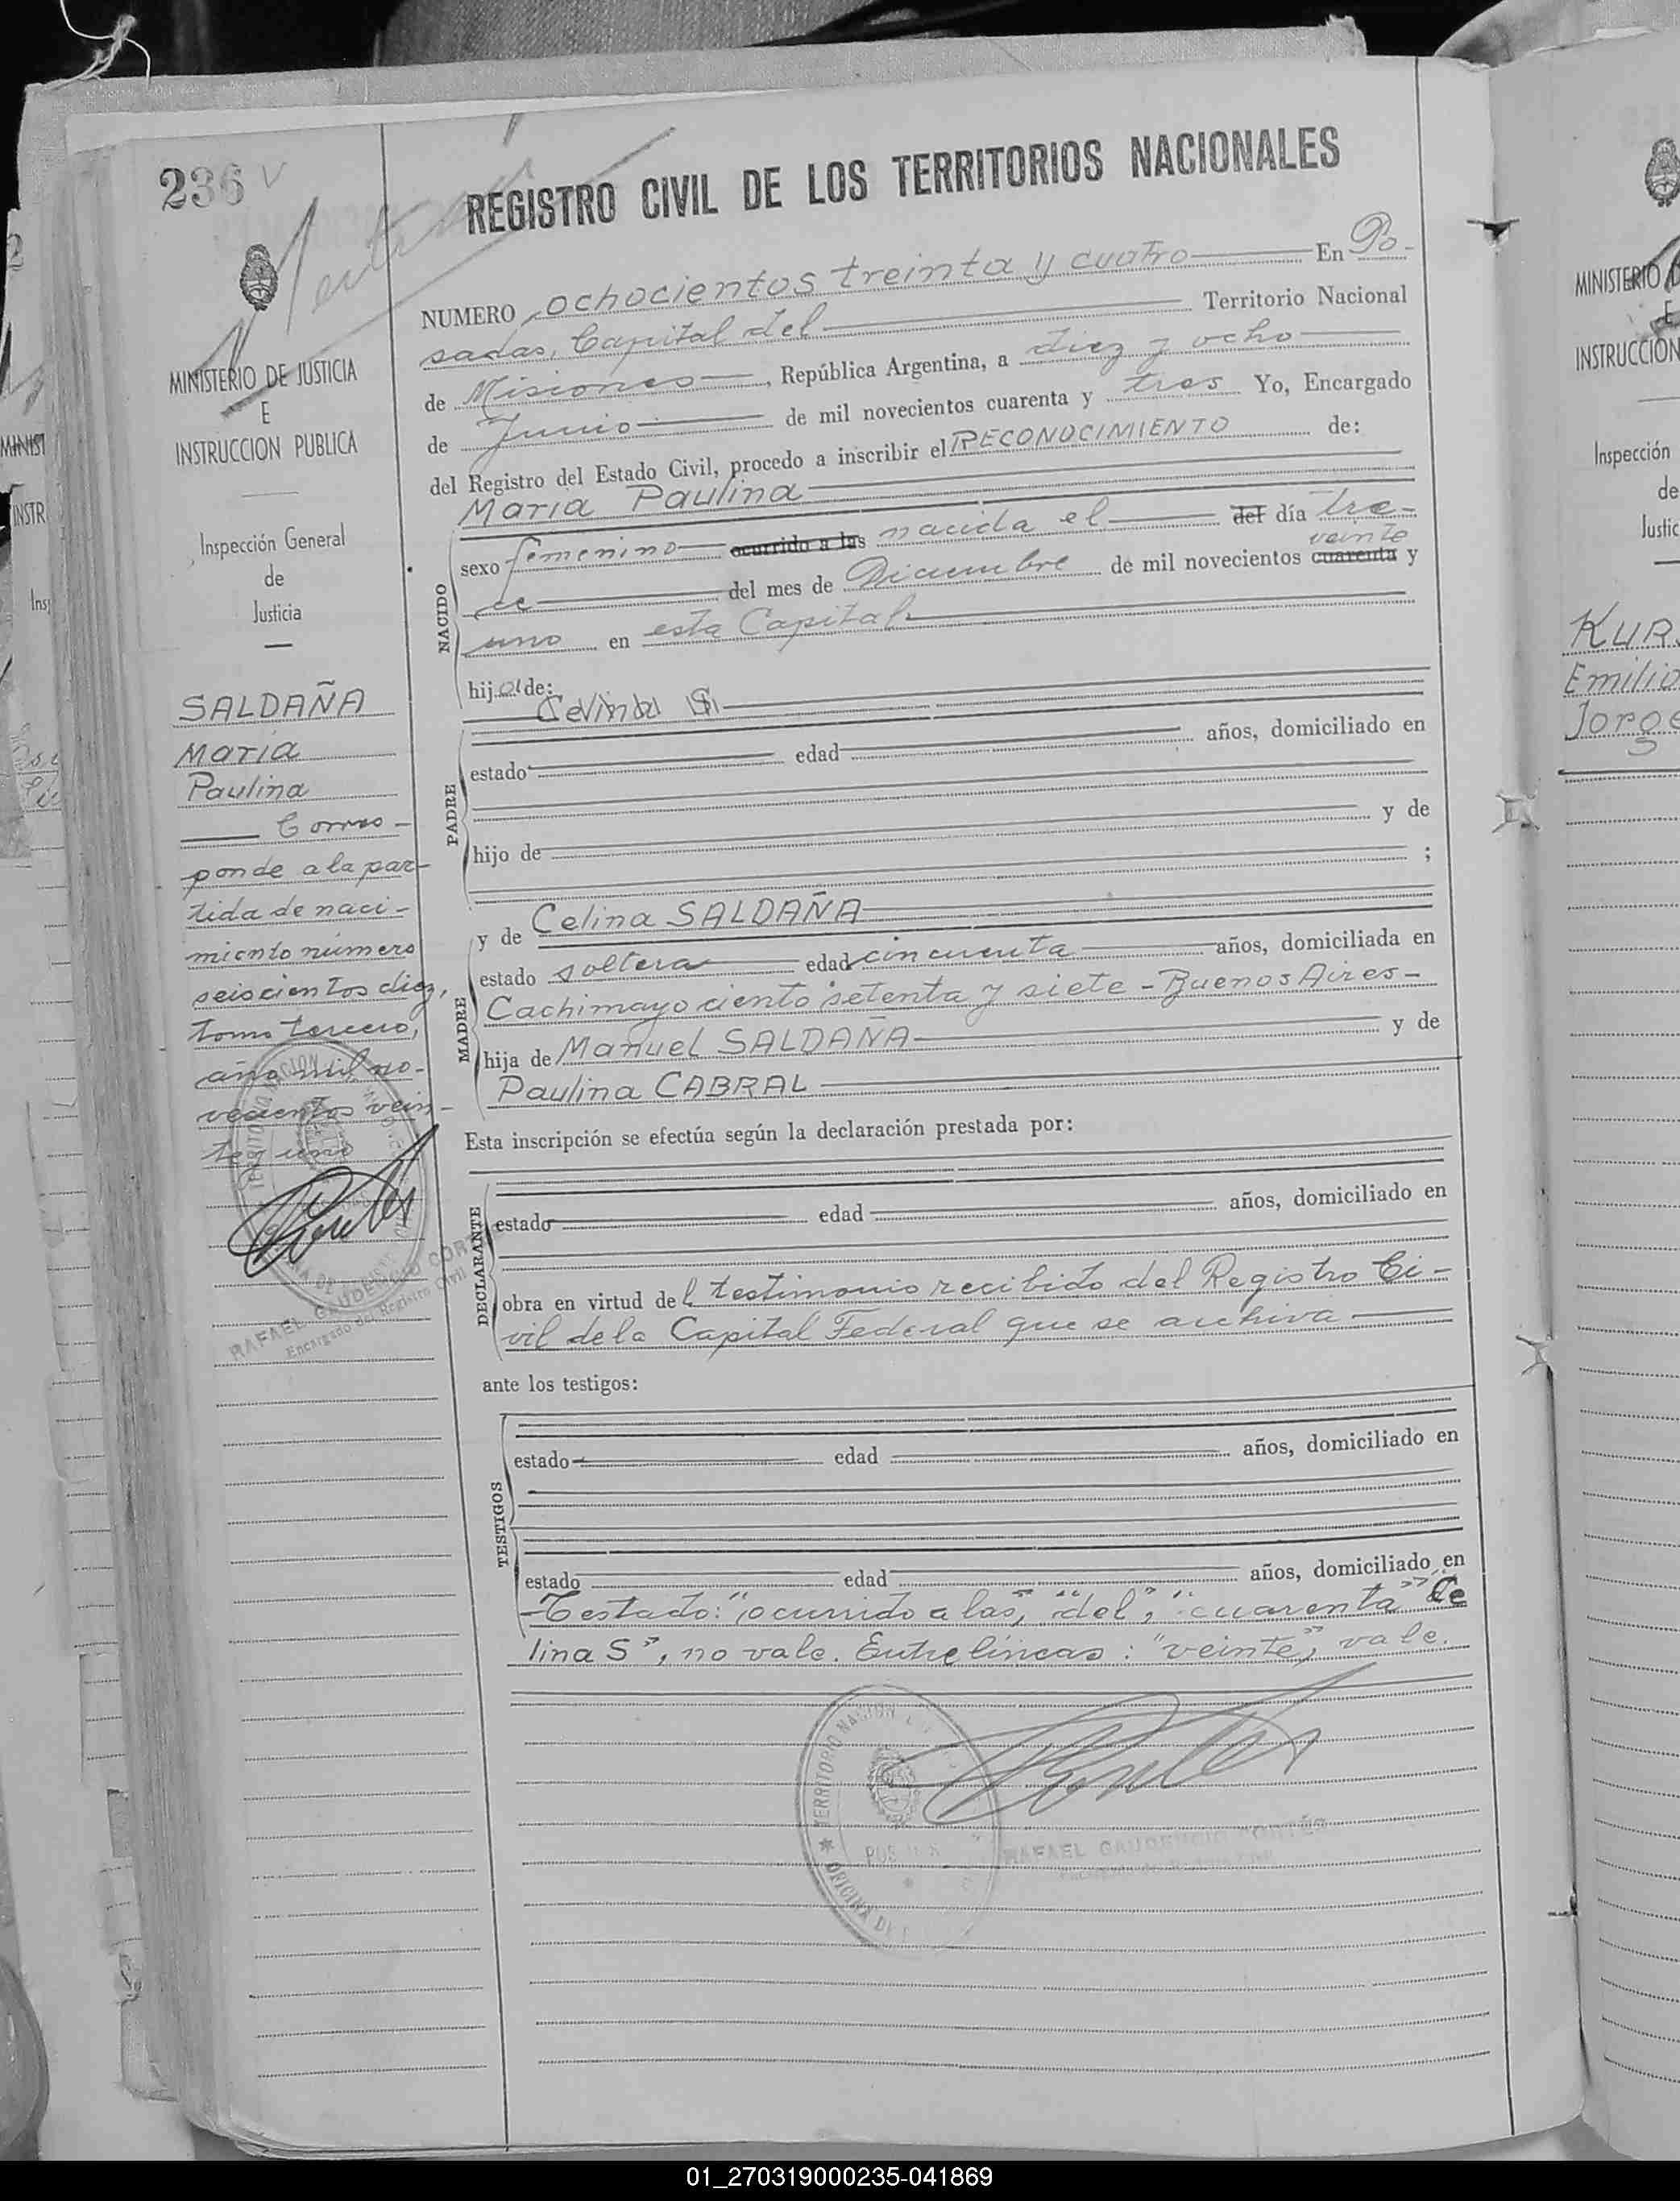 236 V
REGISTRO CIVIL DE LOS TERRITORIOS NACIONALES
MINISTERIO DE JUSTICIA
E
INSTRUCCION PUBLICA
Inspección General
de
Justicia
SALDAÑA
María
Paulina
Corres-
ponde a la par-
tida de naci-
miento número
seiscientos diez,
tomo tercero,
año mil no-
vecientos vein-
te y uno
RAFAEL GAUDENCIO CORTÉS
Encargado del Registro Civil
NUMERO ochocientos treinta y cuatro En Po-
sadas, Capital del Territorio Nacional
de Misiones, República Argentina, a diez y ocho
de Junio de mil novecientos cuarenta y tres Yo, Encargado
del Registro del Estado Civil, procedo a inscribir el RECONOCIMIENTO de:
María Paulina
NACIDO
sexo femenino ocurrido a las nacida el del día tre-
veinte
ce del mes de Diciembre de mil novecientos cuarenta y
uno en esta Capital
hija de:
Celina S
PADRE
estado edad años, domiciliado en
hijo de y de
;
MADRE
y de Celina SALDAÑA
estado soltera edad cincuenta años, domiciliada en
Cachimayo ciento setenta y siete - Buenos Aires -
hija de Manuel SALDAÑA y de
Paulina CABRAL
Esta inscripción se efectúa según la declaración prestada por:
DECLARANTE
estado edad años, domiciliado en
obra en virtud del testimonio recibido del Registro Ci-
vil de la Capital Federal que se archiva
ante los testigos:
TESTIGOS
estado edad años, domiciliado en
estado edad años, domiciliado en
-Testado: "ocurrido a las", "del", "cuarenta" "Ce
lina S", no vale. Entre líneas: "veinte", vale.
TERRITORIO NACION
OFICINA DE
RAFAEL GAUDENCIO CORTÉS
MINISTERIO
E
INSTRUCCION
Inspección
de
Justic
KUR
Emilio
Jorge
01_270319000235-041869